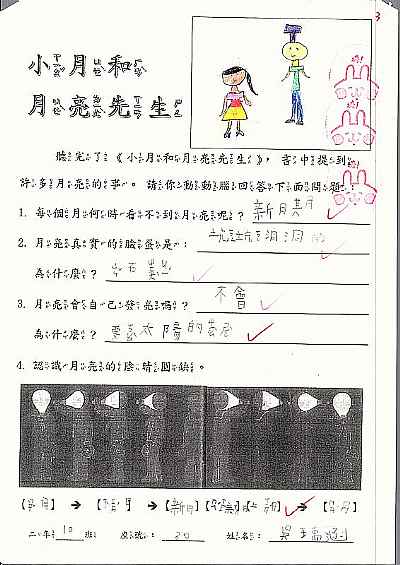 小月和
月亮先生
聽完了《小月和月亮先生》，書中提到
許多月亮的事。請你動動腦回答下面問題：
1. 每個月何時看不到月亮呢？新月其月
2. 月亮真實的臉蛋是：坑坑洞洞的
為什麼？
3. 月亮會自己發亮嗎？不會
為什麼？要靠太陽的
4. 認識月亮的陰晴圓缺。
【月】→【月】→【新月】【】→【月】
二年10班 座號：20 姓名：